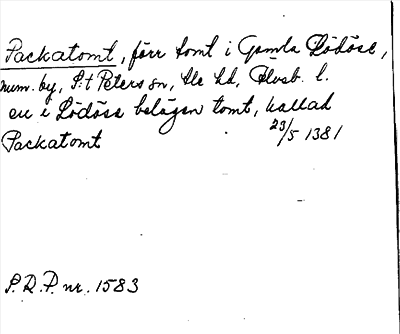 Packatomt, förr tomt i Gamla Lödöse,
num. by, S:t Peters sn, Ale hd, Älvsb. l.
en i Lödöse belägen tomt, kallad
Packatomt 23/5 1381
S.R.P. nr. 1583